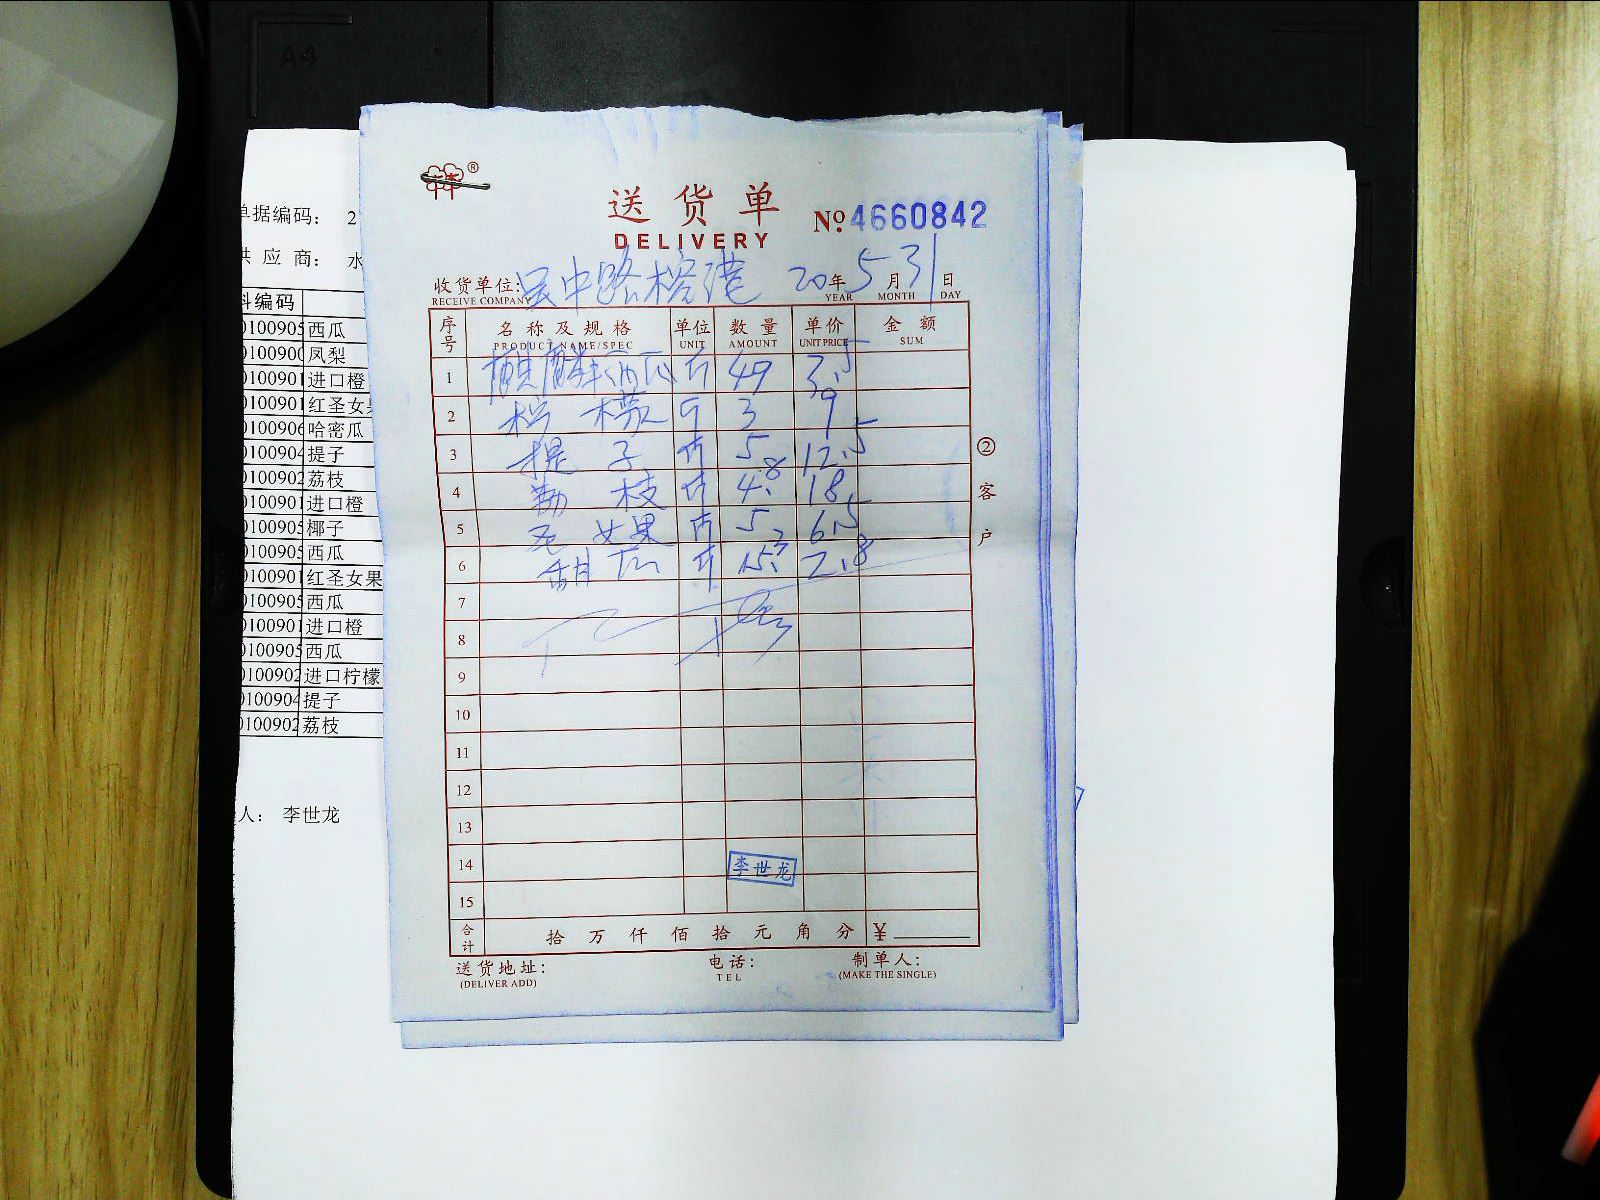 A4
®
送货单
DELIVERY
No.4660842
单据编码： 2
供 应 商： 水
收货单位：吴中路榕港 20年5月31日
RECEIVE COMPANY YEAR MONTH DAY
序号 名称及规格 单位 数量 单价 金额
PRODUCT NAME/SPEC UNIT AMOUNT UNIT PRICE SUM
1 麒麟西瓜 斤 49 3.5
2 柠檬 斤 3 9
3 提子 斤 5 12.5
4 荔枝 斤 4.8 18
5 圣女果 斤 5 6.5
6 甜瓜 斤 15.3 2.8
7
8
9
10
11
12
13
14 李世龙
15
合计 拾 万 仟 佰 拾 元 角 分 ￥
送货地址： 电话： 制单人：
(DELIVER ADD) TEL (MAKE THE SINGLE)
② 客户
料编码
0100905 西瓜
0100900 凤梨
0100901 进口橙
0100901 红圣女果
0100906 哈密瓜
0100904 提子
0100902 荔枝
0100901 进口橙
0100905 椰子
0100905 西瓜
0100901 红圣女果
0100905 西瓜
0100901 进口橙
0100905 西瓜
0100902 进口柠檬
0100904 提子
0100902 荔枝
人： 李世龙